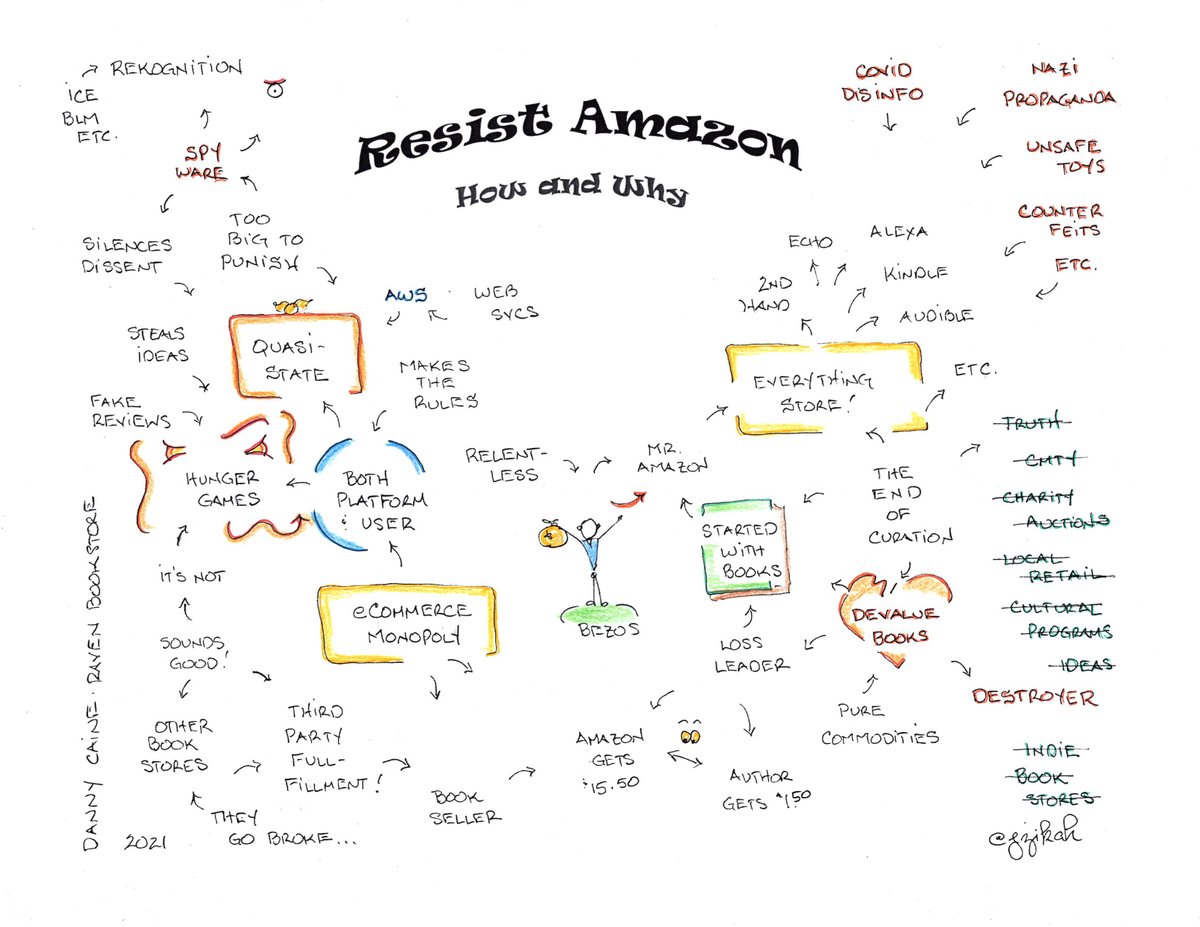 Resist Amazon
How and Why
REKOGNITION
ICE
BLM
ETC.
SPY
WARE
SILENCES
DISSENT
TOO
BIG TO
PUNISH
STEALS
IDEAS
FAKE
REVIEWS
QUASI-
STATE
AWS · WEB
SVCS
MAKES
THE
RULES
HUNGER
GAMES
BOTH
PLATFORM
& USER
IT'S NOT
SOUNDS
GOOD!
eCOMMERCE
MONOPOLY
OTHER
BOOK
STORES
THIRD
PARTY
FULL-
FILLMENT!
THEY
GO BROKE...
BOOK
SELLER
DANNY CAINE · RAVEN BOOKSTORE
2021
RELENT-
LESS
MR.
AMAZON
BEZOS
STARTED
WITH
BOOKS
LOSS
LEADER
AMAZON
GETS
$15.50
AUTHOR
GETS $1.50
ECHO
ALEXA
2ND
HAND
KINDLE
AUDIBLE
EVERYTHING
STORE!
ETC.
THE
END
OF
CURATION
DEVALUE
BOOKS
PURE
COMMODITIES
COVID
DISINFO
NAZI
PROPAGANDA
UNSAFE
TOYS
COUNTER
FEITS
ETC.
TRUTH
CMTY
CHARITY
AUCTIONS
LOCAL
RETAIL
CULTURAL
PROGRAMS
IDEAS
DESTROYER
INDIE
BOOK
STORES